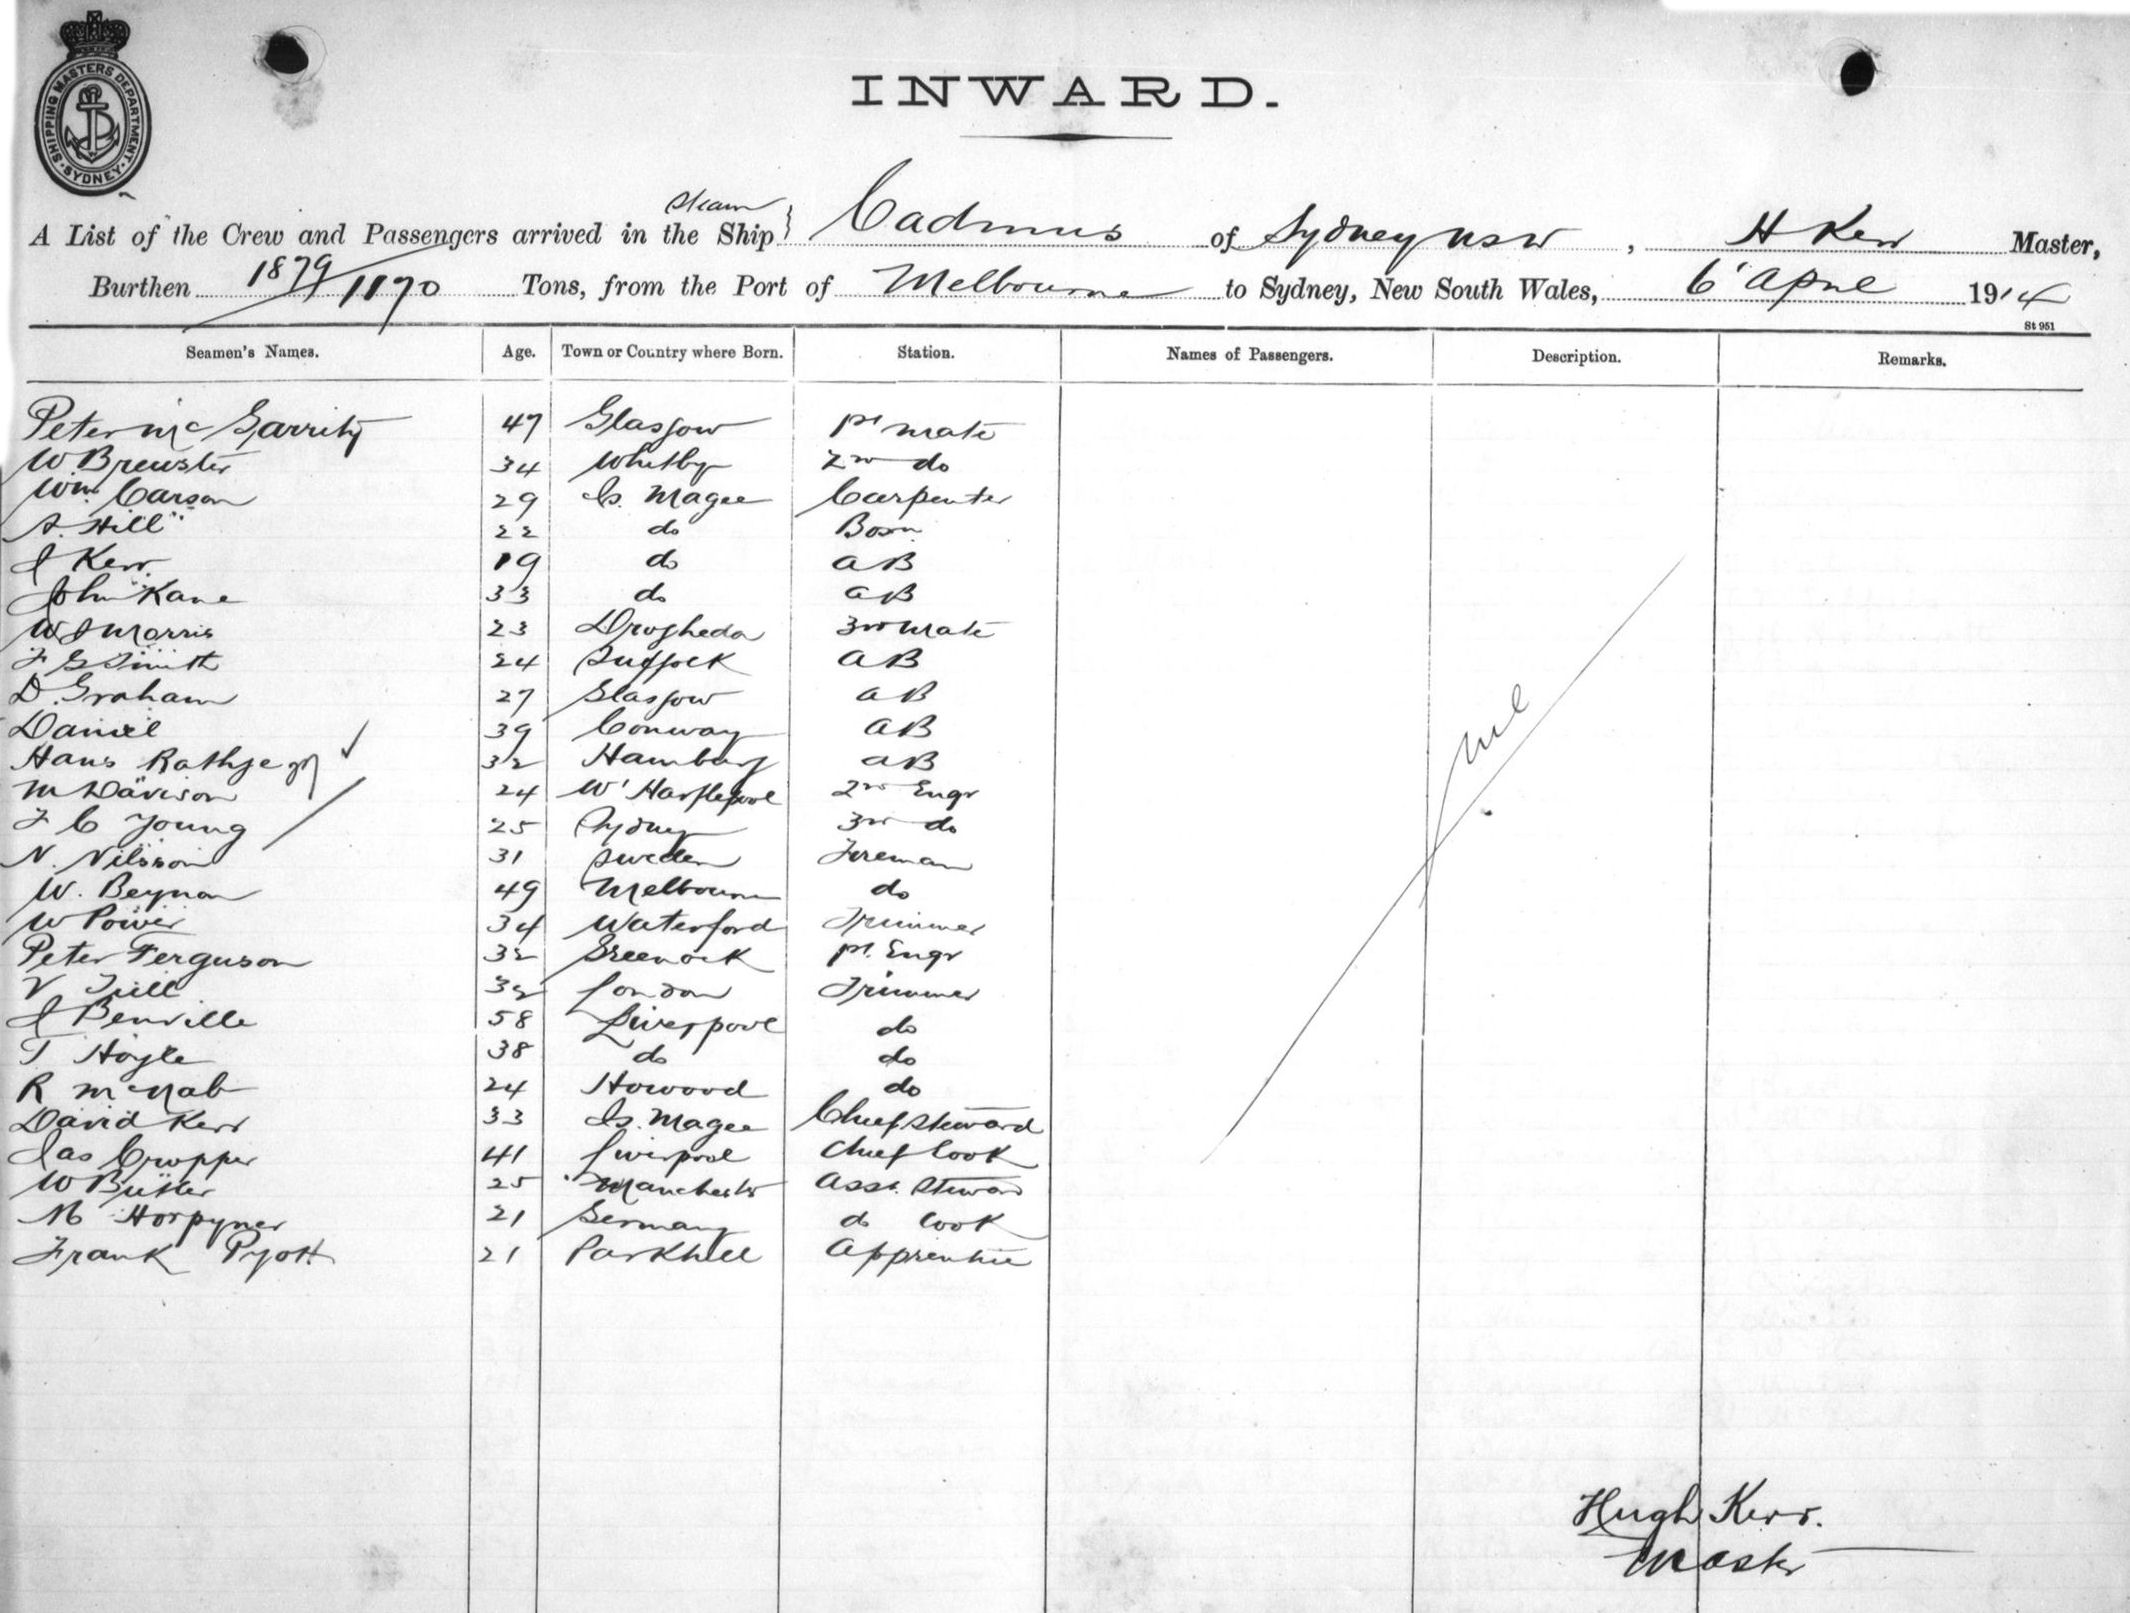 SHIPPING MASTERS DEPARTMENT
SYDNEY
INWARD.
A List of the Crew and Passengers arrived in the Steam Ship } Cadmus of Sydney NSW, H Kerr Master,
Burthen 1879/1170 Tons, from the Port of Melbourne to Sydney, New South Wales, 6 April 1914
St 951
Seamen's Names. Age. Town or Country where Born. Station. Names of Passengers. Description. Remarks.
Peter McGarrity 47 Glasgow 1st mate
W. Brewster 34 Whitby 2nd do
Wm Carson 29 Is. Magee Carpenter
A. Hill 22 do Bosn
J Kerr 19 do AB
John Kane 33 do AB
W J Morris 23 Drogheda 3rd Mate
F G Smith 24 Suffolk AB
D. Graham 27 Glasgow AB
Daniel 39 Conway AB
Hans Rathje 32 Hamburg AB
M Davison 24 W' Hartlepool 2nd Engr
F C Young 25 Sydney 3rd do
N. Nilsson 31 Sweden Fireman
W. Beynon 49 Melbourne do
W Power 34 Waterford Trimmer
Peter Ferguson 32 Greenock 1st. Engr
V Till 32 London Trimmer
J Benville 58 Liverpool do
T Hoyle 38 do do
R McNab 24 Howood do
David Kerr 33 Is. Magee Chief Steward
Jas Cropper 41 Liverpool Chief Cook
W Butler 25 Manchester Asst. Steward
M Horpyner 21 Germany do Cook
Frank Pyott 21 Parkhill Apprentice
Nil
Hugh Kerr.
Master